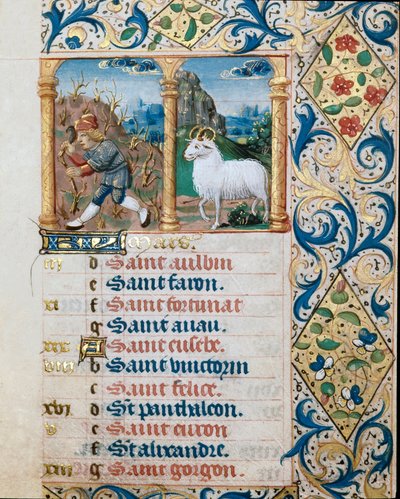 Mars.
iii d Saint aulbin
e Saint faron.
xi f Saint fortunat
g Saint auau.
xix A Saint eusebe.
viii b Saint victorin
c Saint felice.
xvi d St panthaleon.
v e Saint ciron
f St alixandre.
xiii g Saint gorgon.